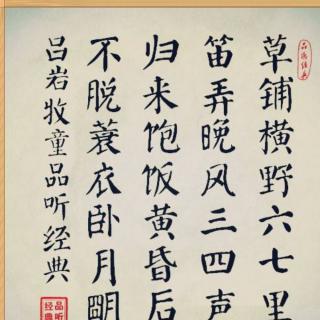 品听经典
草铺横野六七里
笛弄晚风三四声
归来饱饭黄昏后
不脱蓑衣卧月明
吕岩牧童品听经典
品听
经典